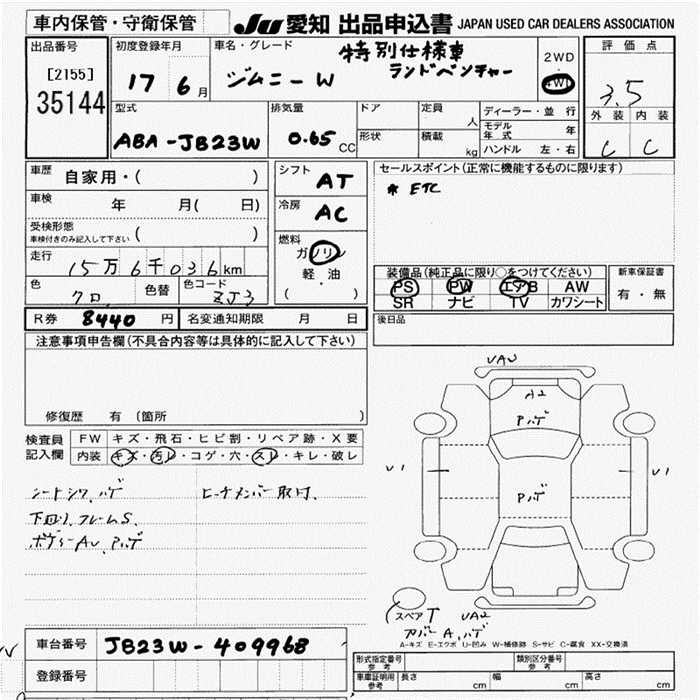 車内保管・守衛保管
JU 愛知 出品申込書 JAPAN USED CAR DEALERS ASSOCIATION
出品番号
[2155]
35144
初度登録年月
17 6 月
車名・グレード
ジムニーW
特別仕様車
ランドベンチャー
2WD
4WD
評価点
3.5
外装 内装
C C
型式
ABA-JB23W
排気量
0.65 CC
ドア
形状
定員 人
積載 kg
ディーラー・並行
モデル年式 年
ハンドル 左・右
車歴 自家用・( )
車検 年 月( 日)
受検形態
車検付きのみ記入して下さい ( )
走行
15万6千036km
色
クロ
色替
色コード
ZJ3
シフト
AT
冷房
AC
燃料
ガソリン
・
軽・油
( )
セールスポイント(正常に機能するものに限ります)
* ETC
装備品(純正品に限り○をつけてください)
PS PW エアB AW
SR ナビ TV カワシート
新車保証書
有・無
R券 8440 円
名変通知期限 月 日
後日品
注意事項申告欄(不具合内容等は具体的に記入して下さい)
修復歴 有 (箇所 )
検査員
記入欄
FW キズ・飛石・ヒビ割・リペア跡・X要
内装 キズ・汚レ・コゲ・穴・スレ・キレ・破レ
シートシワ、ハゲ
ヒッチメンバー取付.
下回り、フレームS.
ボデーAU、Pハゲ
UA2
A2
Pハゲ
U1
U1
Pハゲ
スペア T
UA2
カバーA、ハゲ
A-キズ E-エクボ U-凹み W-補修跡 S-サビ C-腐食 XX-交換済
車台番号 JB23W-409968
登録番号
形式指定番号
参考
類別区分番号
参考
車庫証明用
参考
長さ cm
幅 cm
高さ cm